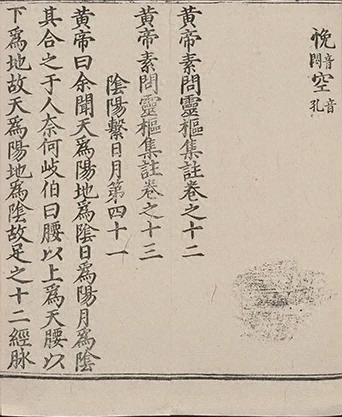 悗音悶空音孔
黃帝素問靈樞集註卷之十二
黃帝素問靈樞集註卷之十三
陰陽繫日月第四十一
黃帝曰余聞天爲陽地爲陰日爲陽月爲陰
其合之于人奈何岐伯曰腰以上爲天腰以
下爲地故天爲陽地爲陰故足之十二經脉